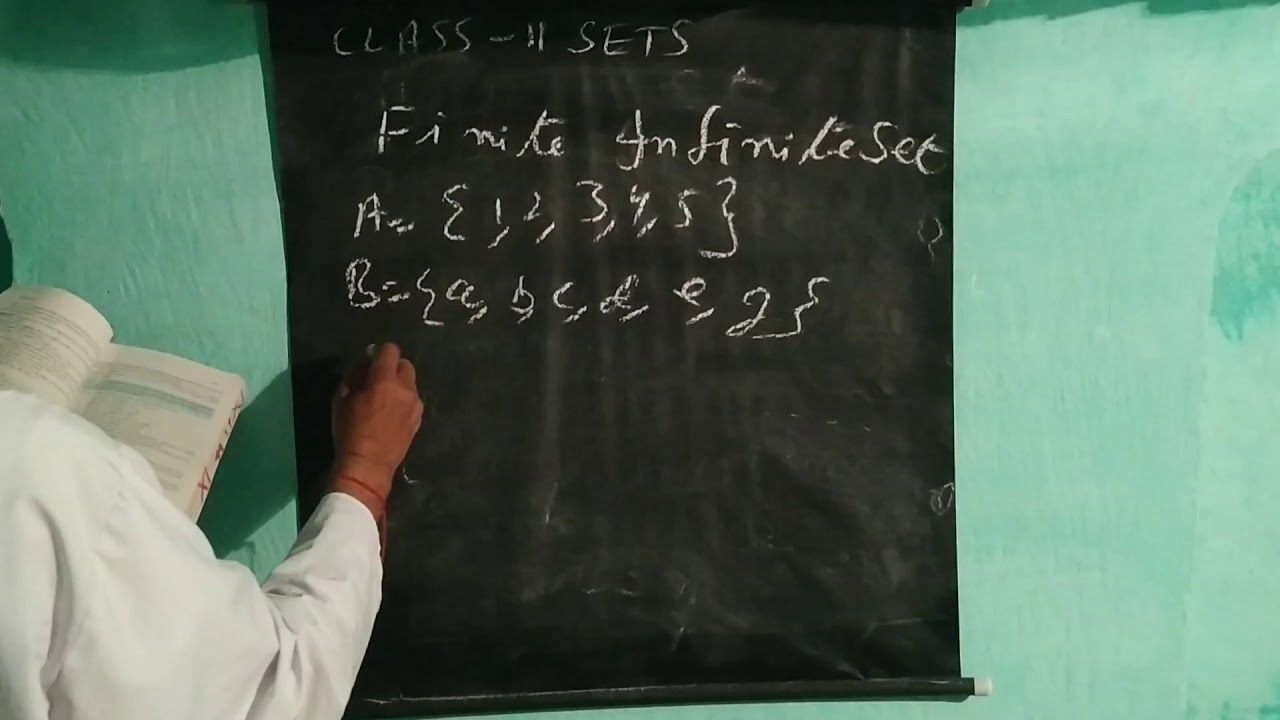 CLASS-11 SETS
Finite Infinite Set
A= {1,2,3,4,5}
B={a,b,c,d,e,g}